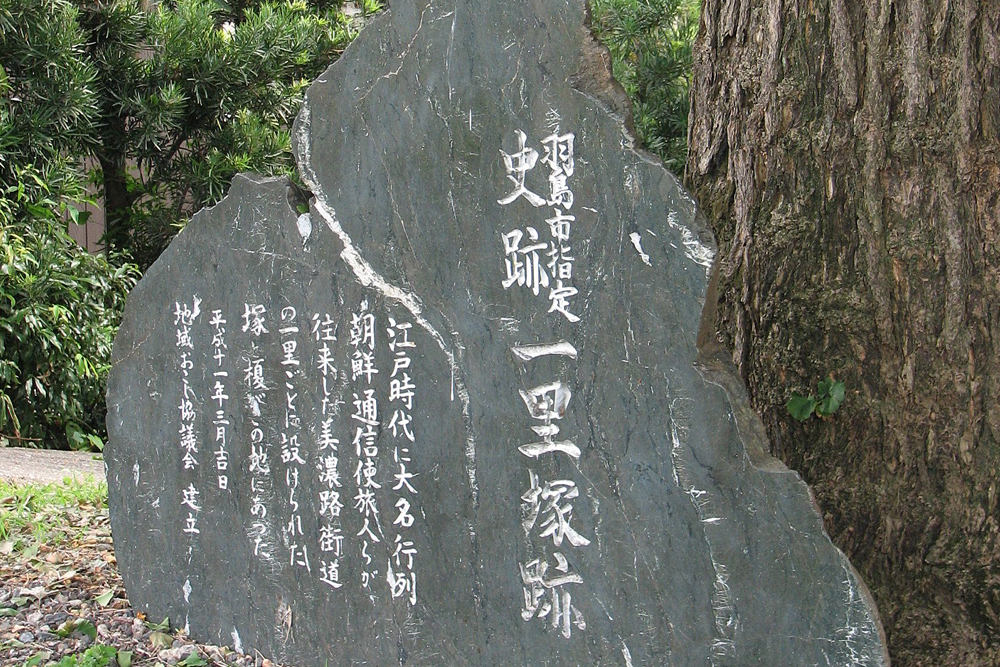 羽島市指定
史跡
一里塚跡
江戸時代に大名行列
朝鮮通信使旅人らが
往来した美濃路街道
の一里ごとに設けられた
塚と榎がこの地にあった
平成十一年三月吉日
地域おこし協議会 建立